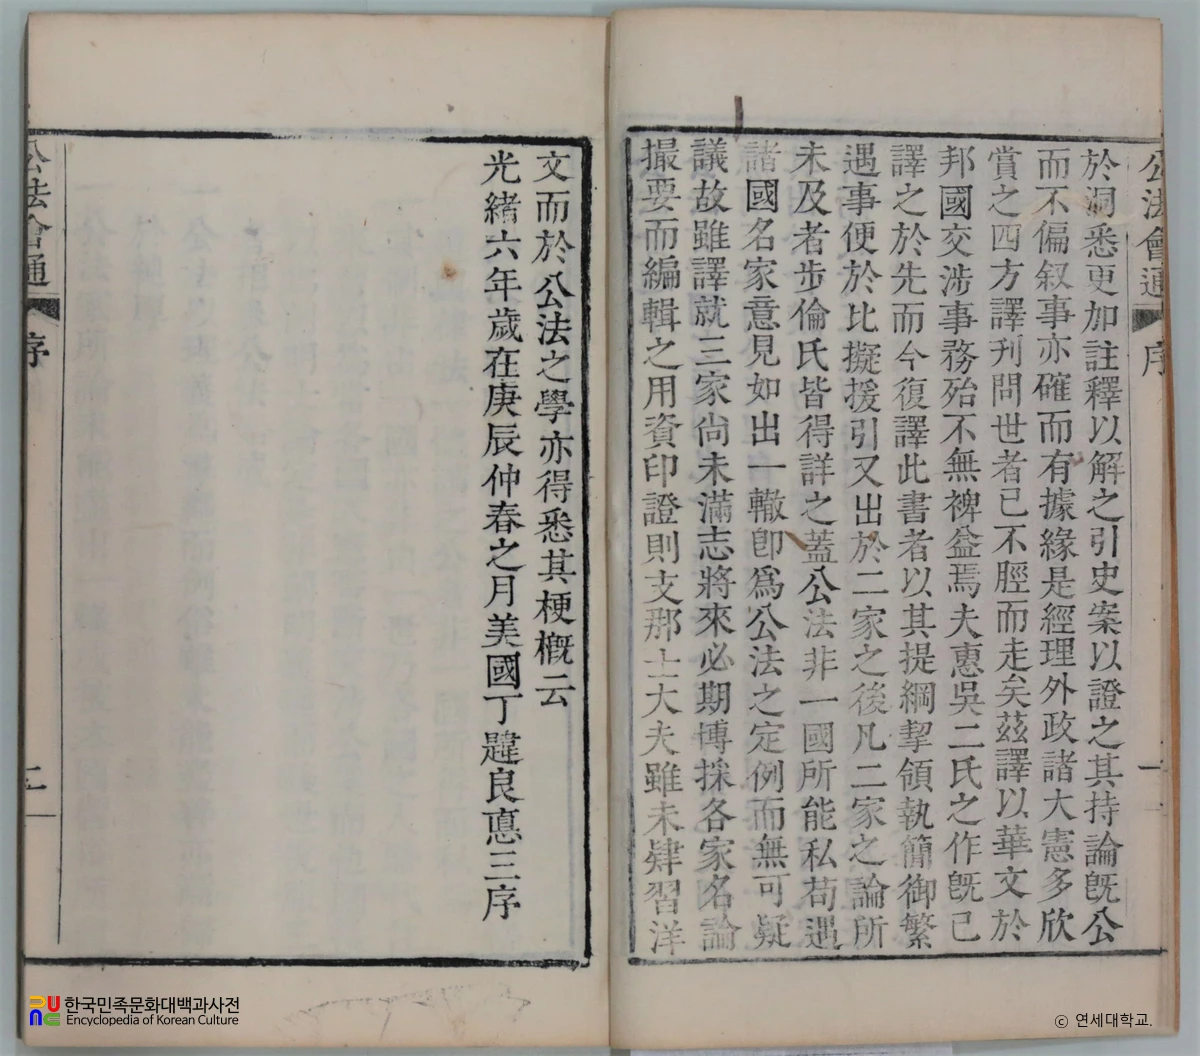 公法會通 序 一
於洞悉更加註釋以解之引史案以證之其持論旣公
而不偏叙事亦確而有據緣是經理外政諸大憲多欣
賞之四方譯刊問世者已不脛而走矣茲譯以華文於
邦國交涉事務殆不無裨益焉夫惠吳二氏之作旣已
譯之於先而今復譯此書者以其提綱挈領執簡御繁
遇事便於比擬援引又出於二家之後凡二家之論所
未及者步倫氏皆得詳之蓋公法非一國所能私苟遇
諸國名家意見如出一轍卽爲公法之定例而無可疑
議故雖譯就三家尙未滿志將來必期博採各家名論
撮要而編輯之用資印證則支那士大夫雖未肄習洋
文而於公法之學亦得悉其梗概云
光緒六年歲在庚辰仲春之月美國丁韙良悳三序
公法會通 序 二
한국민족문화대백과사전
Encyclopedia of Korean Culture
ⓒ 연세대학교.